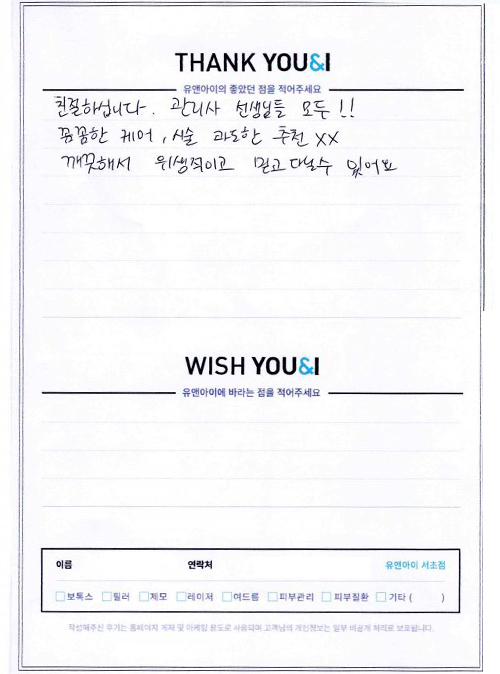 THANK YOU&I
유앤아이의 좋았던 점을 적어주세요
친절하십니다. 관리사 선생님들 모두!!
꼼꼼한 케어, 시술 과도한 추천 XX
깨끗해서 위생적이고 믿고 다닐수 있어요
WISH YOU&I
유앤아이에 바라는 점을 적어주세요
이름 연락처 유앤아이 서초점
보톡스 필러 제모 레이저 여드름 피부관리 피부질환 기타 ( )
작성해주신 후기는 홈페이지 게재 및 마케팅 용도로 사용되며 고객님의 개인정보는 일부 비공개 처리로 보호됩니다.